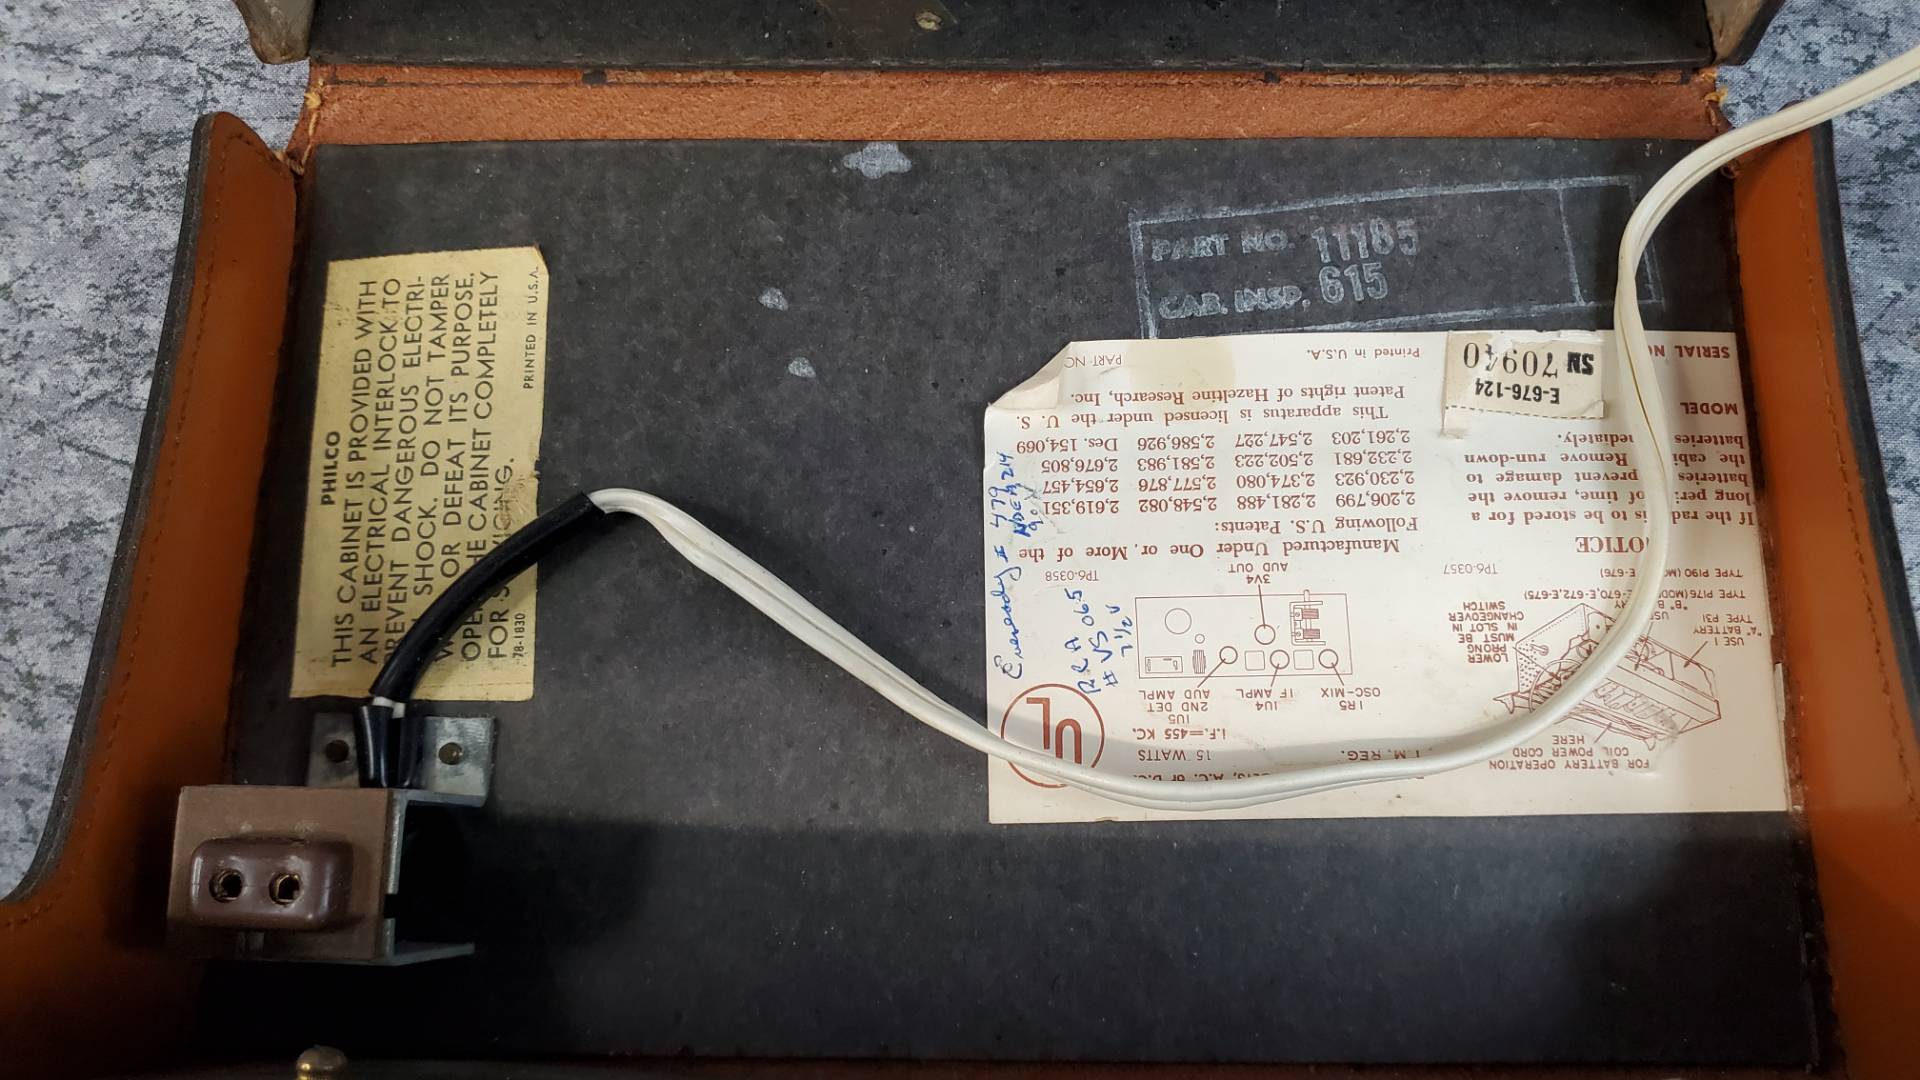 PHILCO
THIS CABINET IS PROVIDED WITH
AN ELECTRICAL INTERLOCK TO
PREVENT DANGEROUS ELECTRI-
SHOCK. DO NOT TAMPER
OR DEFEAT ITS PURPOSE.
THE CABINET COMPLETELY
FOR
78-1830
PRINTED IN U.S.A.
PART NO. 11185
CAB. INSP. 615
FOR BATTERY OPERATION
COIL POWER CORD
HERE
USE 1
"A" BATTERY
TYPE P31
LOWER
PRONG
MUST BE
IN SLOT IN
CHANGEOVER
SWITCH
TYPE P190
E-676)
TP6-0357
If the is to be stored for a
long of time, remove the
batteries prevent damage to
the Remove run-down
batteries
MODEL
E-676-124
SERIAL
SN 70940
15 WATTS
I.F.=455 KC.
UL
1R5
OSC-MIX
1U4
I F AMPL
1U5
2ND DET
AUD AMPL
3V4
AUD OUT
TP6-0358
Manufactured Under One or More of the
Following U.S. Patents:
2,206,799 2,281,488 2,548,082 2,619,351
2,230,923 2,374,080 2,577,876 2,654,457
2,232,681 2,502,223 2,581,983 2,676,805
2,261,203 2,547,227 2,586,926 Des. 154,069
This apparatus is licensed under the U. S.
Patent rights of Hazeltine Research, Inc.
Printed in U.S.A.
Eveready # 479
90V
RCA
# VS 065
7 1/2 V